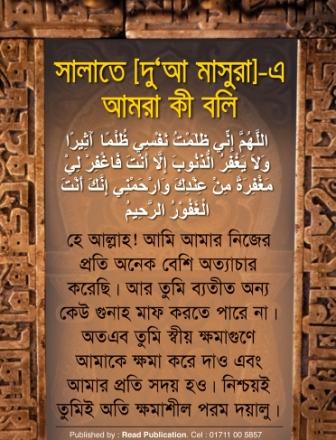 সালাতে [দু‘আ মাসুরা]-এ
আমরা কী বলি
اللَّهُمَّ إِنِّي ظَلَمْتُ نَفْسِي ظُلْمًا آثِيرًا
وَلَا يَغْفِرُ الذُّنُوبَ إِلَّا أَنْتَ فَاغْفِرْ لِيْ
مَغْفِرَةً مِنْ عِنْدِكَ وَارْحَمْنِي إِنَّكَ أَنْتَ
الْغَفُوْرُ الرَّحِيمُ
হে আল্লাহ! আমি আমার নিজের
প্রতি অনেক বেশি অত্যাচার
করেছি। আর তুমি ব্যতীত অন্য
কেউ গুনাহ মাফ করতে পারে না।
অতএব তুমি স্বীয় ক্ষমাগুণে
আমাকে ক্ষমা করে দাও এবং
আমার প্রতি সদয় হও। নিশ্চয়ই
তুমিই অতি ক্ষমাশীল পরম দয়ালু।
Published by : Read Publication. Cel : 01711 00 5857